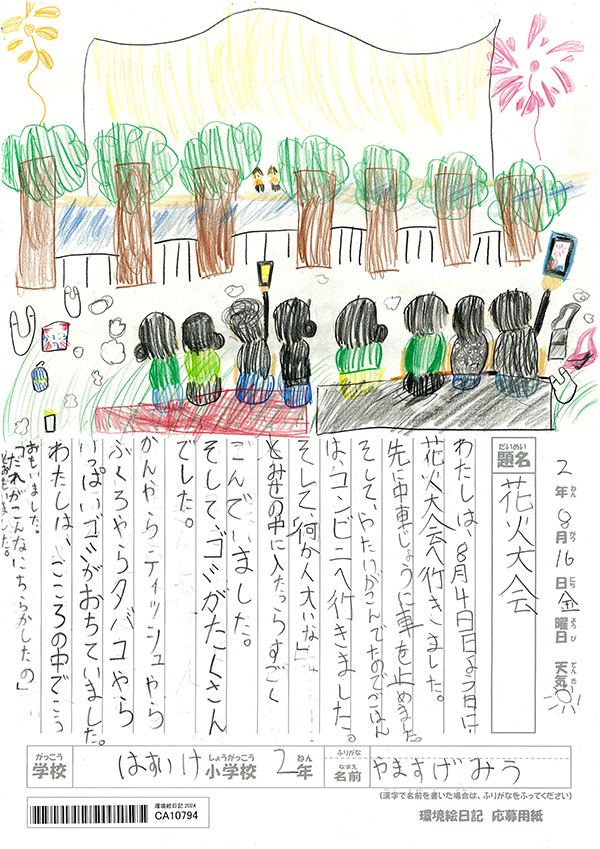 2年8月16日金曜日 天気
題名 花火大会
わたしは、8月4日日よう日に
花火大会へ行きました。
先に中車じょうに車を止めました。
そして、やたいがこんでたのでごはん
は、コンビニへ行きました。
そして、何か人大いな」
とみせの中に入たっらすごく
こんでいました。
そして、ゴミがたくさん
でした。
かんやらティッシュやら
ふくろやらタバコやら
いっぱいゴミがおちていました。
わたしは、こころの中でこう
おもいました。
「だれがこんなにちらかしたの」
とおもいました。
がっこう しょうがっこう ねん ふりがな
学校 はすいけ 小学校 2年 なまえ 名前 やますげみう
(漢字で名前を書いた場合は、ふりがなをふってください)
環境絵日記2024
CA10794
環境絵日記 応募用紙